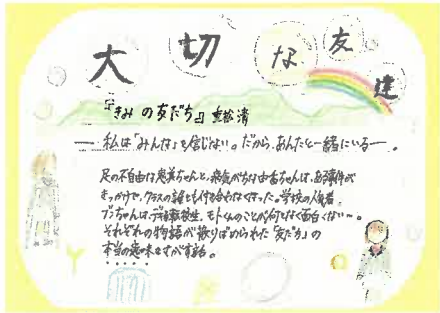 大切な友達
『きみの友だち』重松清
―私は「みんな」を信じない。だから、あんたと一緒にいる―。
足の不自由な恵美ちゃんと、病気がちな由香ちゃんは、ある事件が
きっかけで、クラスの誰とも付き合わなくなった。学校の人気者、
ブンちゃんは、デキる転校生、モトくんのことが何となく面白くない…。
それぞれの物語がちりばめられた「友だち」の
本当の意味をさがす話。